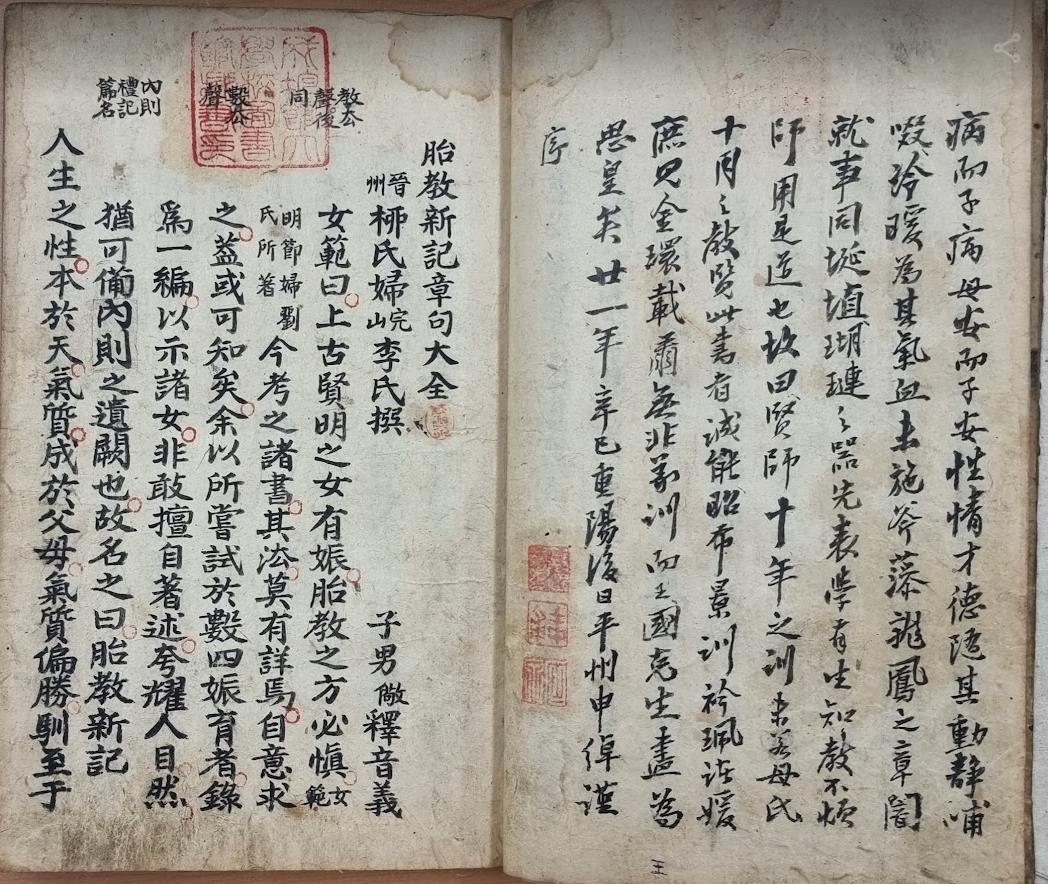 病而子病母安而子安性情才德隨其動靜哺
啜冷暖為其氣血未施斧藻龍鳳之章闇
就事同埏埴瑚璉之器先表學有生知教不煩
師用是道也故曰賢師十年之訓未若母氏
十月之教覽此書者誠能昭布景訓衿珮諸媛
庶見金環載肅無非訓而王國克生盡為
思皇矣廿一年辛巳重陽後日平州申綽謹
序
王
教去聲後同
數去聲
內則禮記篇名
胎教新記章句大全
晉州柳氏婦完山李氏撰 子男儆釋音義
女範曰上古賢明之女有娠胎教之方必愼女範
明節婦劉氏所著今考之諸書其法莫有詳焉自意求
之葢或可知矣余以所嘗試於數四娠育者錄
爲一編以示諸女非敢擅自著述夸耀人目然
猶可備內則之遺闕也故名之曰胎教新記
人生之性本於天氣質成於父母氣質偏勝馴至于